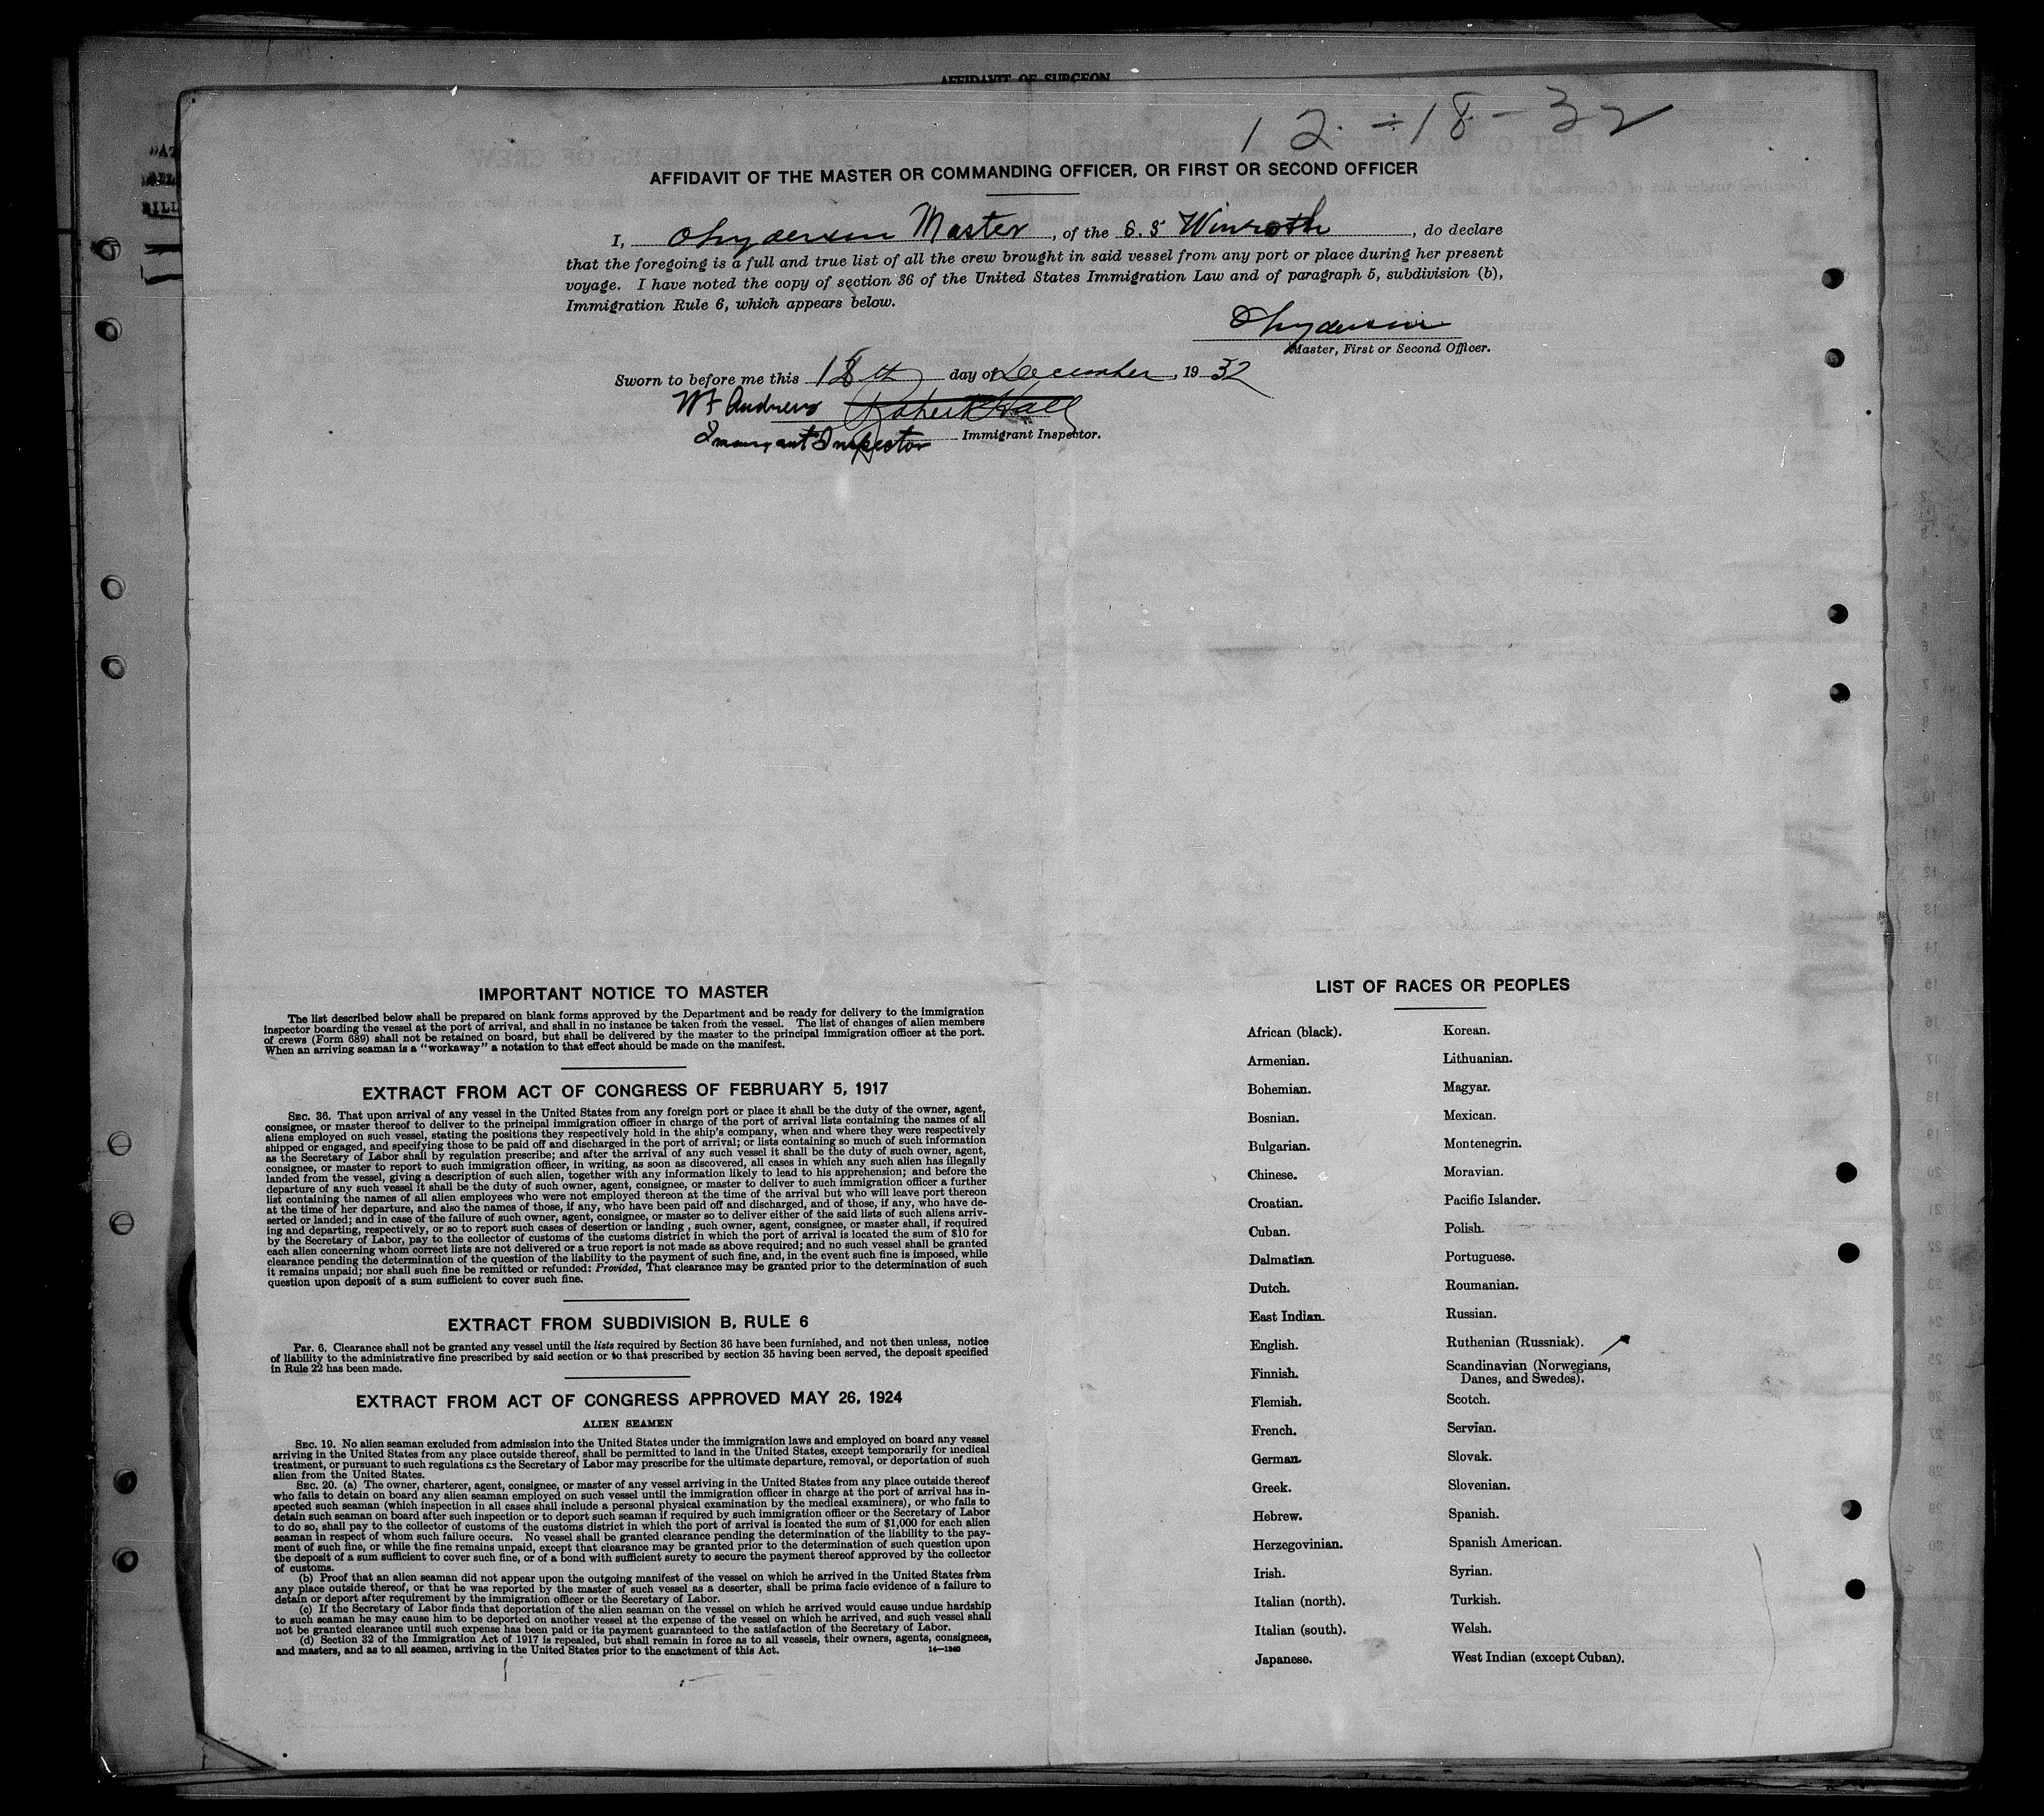 AFFIDAVIT OF SURGEON
12-18-32
AFFIDAVIT OF THE MASTER OR COMMANDING OFFICER, OR FIRST OR SECOND OFFICER
I, Master, of the S.S Winroth, do declare
that the foregoing is a full and true list of all the crew brought in said vessel from any port or place during her present
voyage. I have noted the copy of section 36 of the United States Immigration Law and of paragraph 5, subdivision (b),
Immigration Rule 6, which appears below.
Master, First or Second Officer.
Sworn to before me this 18th day of December, 1932
Andrews Robert Hall
Immigrant Inspector Immigrant Inspector.
IMPORTANT NOTICE TO MASTER
The list described below shall be prepared on blank forms approved by the Department and be ready for delivery to the immigration
inspector boarding the vessel at the port of arrival, and shall in no instance be taken from the vessel. The list of changes of alien members
of crews (Form 689) shall not be retained on board, but shall be delivered by the master to the principal immigration officer at the port.
When an arriving seaman is a "workaway" a notation to that effect should be made on the manifest.
EXTRACT FROM ACT OF CONGRESS OF FEBRUARY 5, 1917
SEC. 36. That upon arrival of any vessel in the United States from any foreign port or place it shall be the duty of the owner, agent,
consignee, or master thereof to deliver to the principal immigration officer in charge of the port of arrival lists containing the names of all
aliens employed on such vessel, stating the positions they respectively hold in the ship's company, when and where they were respectively
shipped or engaged, and specifying those to be paid off and discharged in the port of arrival; or lists containing so much of such information
as the Secretary of Labor shall by regulation prescribe; and after the arrival of any such vessel it shall be the duty of such owner, agent,
consignee, or master to report to such immigration officer, in writing, as soon as discovered, all cases in which any such alien has illegally
landed from the vessel, giving a description of such alien, together with any information likely to lead to his apprehension; and before the
departure of any such vessel it shall be the duty of such owner, agent, consignee, or master to deliver to such immigration officer a further
list containing the names of all alien employees who were not employed thereon at the time of the arrival but who will leave port thereon
at the time of her departure, and also the names of those, if any, who have been paid off and discharged, and of those, if any, who have de-
serted or landed; and in case of the failure of such owner, agent, consignee, or master so to deliver either of the said lists of such aliens arriv-
ing and departing, respectively, or so to report such cases of desertion or landing, such owner, agent, consignee, or master shall, if required
by the Secretary of Labor, pay to the collector of customs of the customs district in which the port of arrival is located the sum of $10 for
each alien concerning whom correct lists are not delivered or a true report is not made as above required; and no such vessel shall be granted
clearance pending the determination of the question of the liability to the payment of such fine, and, in the event such fine is imposed, while
it remains unpaid; nor shall such fine be remitted or refunded: Provided, That clearance may be granted prior to the determination of such
question upon deposit of a sum sufficient to cover such fine.
EXTRACT FROM SUBDIVISION B, RULE 6
Par. 6. Clearance shall not be granted any vessel until the lists required by Section 36 have been furnished, and not then unless, notice
of liability to the administrative fine prescribed by said section or to that prescribed by section 35 having been served, the deposit specified
in Rule 22 has been made.
EXTRACT FROM ACT OF CONGRESS APPROVED MAY 26, 1924
ALIEN SEAMEN
SEC. 19. No alien seaman excluded from admission into the United States under the immigration laws and employed on board any vessel
arriving in the United States from any place outside thereof, shall be permitted to land in the United States, except temporarily for medical
treatment, or pursuant to such regulations as the Secretary of Labor may prescribe for the ultimate departure, removal, or deportation of such
alien from the United States.
SEC. 20. (a) The owner, charterer, agent, consignee, or master of any vessel arriving in the United States from any place outside thereof
who fails to detain on board any alien seaman employed on such vessel until the immigration officer in charge at the port of arrival has in-
spected such seaman (which inspection in all cases shall include a personal physical examination by the medical examiners), or who fails to
detain such seaman on board after such inspection or to deport such seaman if required by such immigration officer or the Secretary of Labor
to do so, shall pay to the collector of customs of the customs district in which the port of arrival is located the sum of $1,000 for each alien
seaman in respect of whom such failure occurs. No vessel shall be granted clearance pending the determination of the liability to the pay-
ment of such fine, or while the fine remains unpaid, except that clearance may be granted prior to the determination of such question upon
the deposit of a sum sufficient to cover such fine, or of a bond with sufficient surety to secure the payment thereof approved by the collector
of customs.
(b) Proof that an alien seaman did not appear upon the outgoing manifest of the vessel on which he arrived in the United States from
any place outside thereof, or that he was reported by the master of such vessel as a deserter, shall be prima facie evidence of a failure to
detain or deport after requirement by the immigration officer or the Secretary of Labor.
(c) If the Secretary of Labor finds that deportation of the alien seaman on the vessel on which he arrived would cause undue hardship
to such seaman he may cause him to be deported on another vessel at the expense of the vessel on which he arrived, and such vessel shall
not be granted clearance until such expense has been paid or its payment guaranteed to the satisfaction of the Secretary of Labor.
(d) Section 32 of the Immigration Act of 1917 is repealed, but shall remain in force as to all vessels, their owners, agents, consignees,
and masters, and as to all seamen, arriving in the United States prior to the enactment of this Act.
14—1240
LIST OF RACES OR PEOPLES
African (black).
Armenian.
Bohemian.
Bosnian.
Bulgarian.
Chinese.
Croatian.
Cuban.
Dalmatian.
Dutch.
East Indian.
English.
Finnish.
Flemish.
French.
German.
Greek.
Hebrew.
Herzegovinian.
Irish.
Italian (north).
Italian (south).
Japanese.
Korean.
Lithuanian.
Magyar.
Mexican.
Montenegrin.
Moravian.
Pacific Islander.
Polish.
Portuguese.
Roumanian.
Russian.
Ruthenian (Russniak).
Scandinavian (Norwegians,
Danes, and Swedes).
Scotch.
Servian.
Slovak.
Slovenian.
Spanish.
Spanish American.
Syrian.
Turkish.
Welsh.
West Indian (except Cuban).